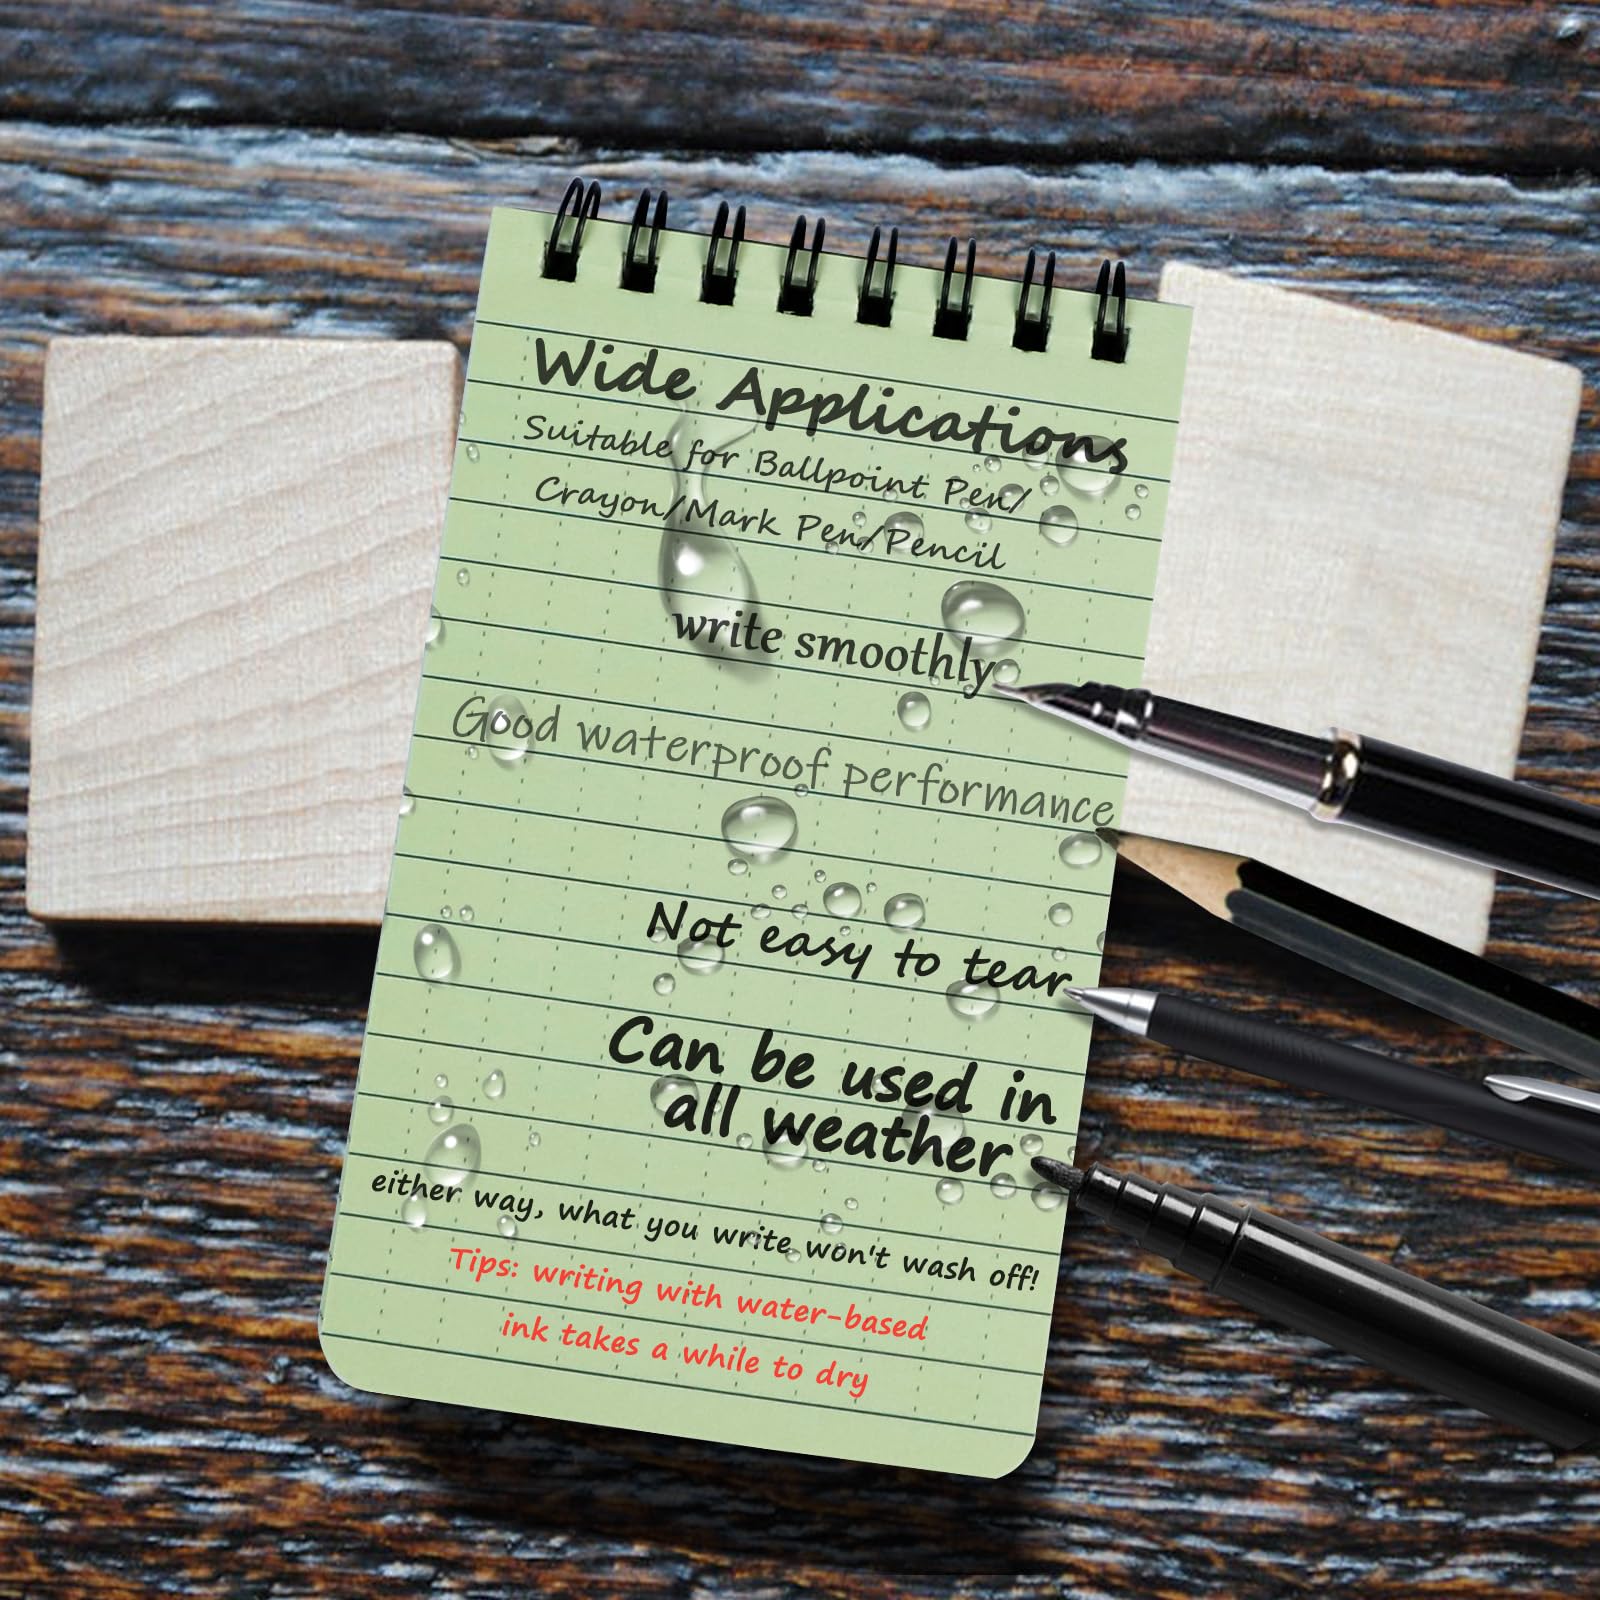 Wide Applications
Suitable for Ballpoint Pen/
Crayon/Mark Pen/Pencil
write smoothly
Good waterproof performance
Not easy to tear
Can be used in
all weather
either way, what you write won't wash off!
Tips: writing with water-based
ink takes a while to dry